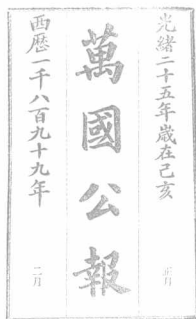 光緒二十五年歲在己亥
正月
萬國公報
西歷一千八百九十九年
二月